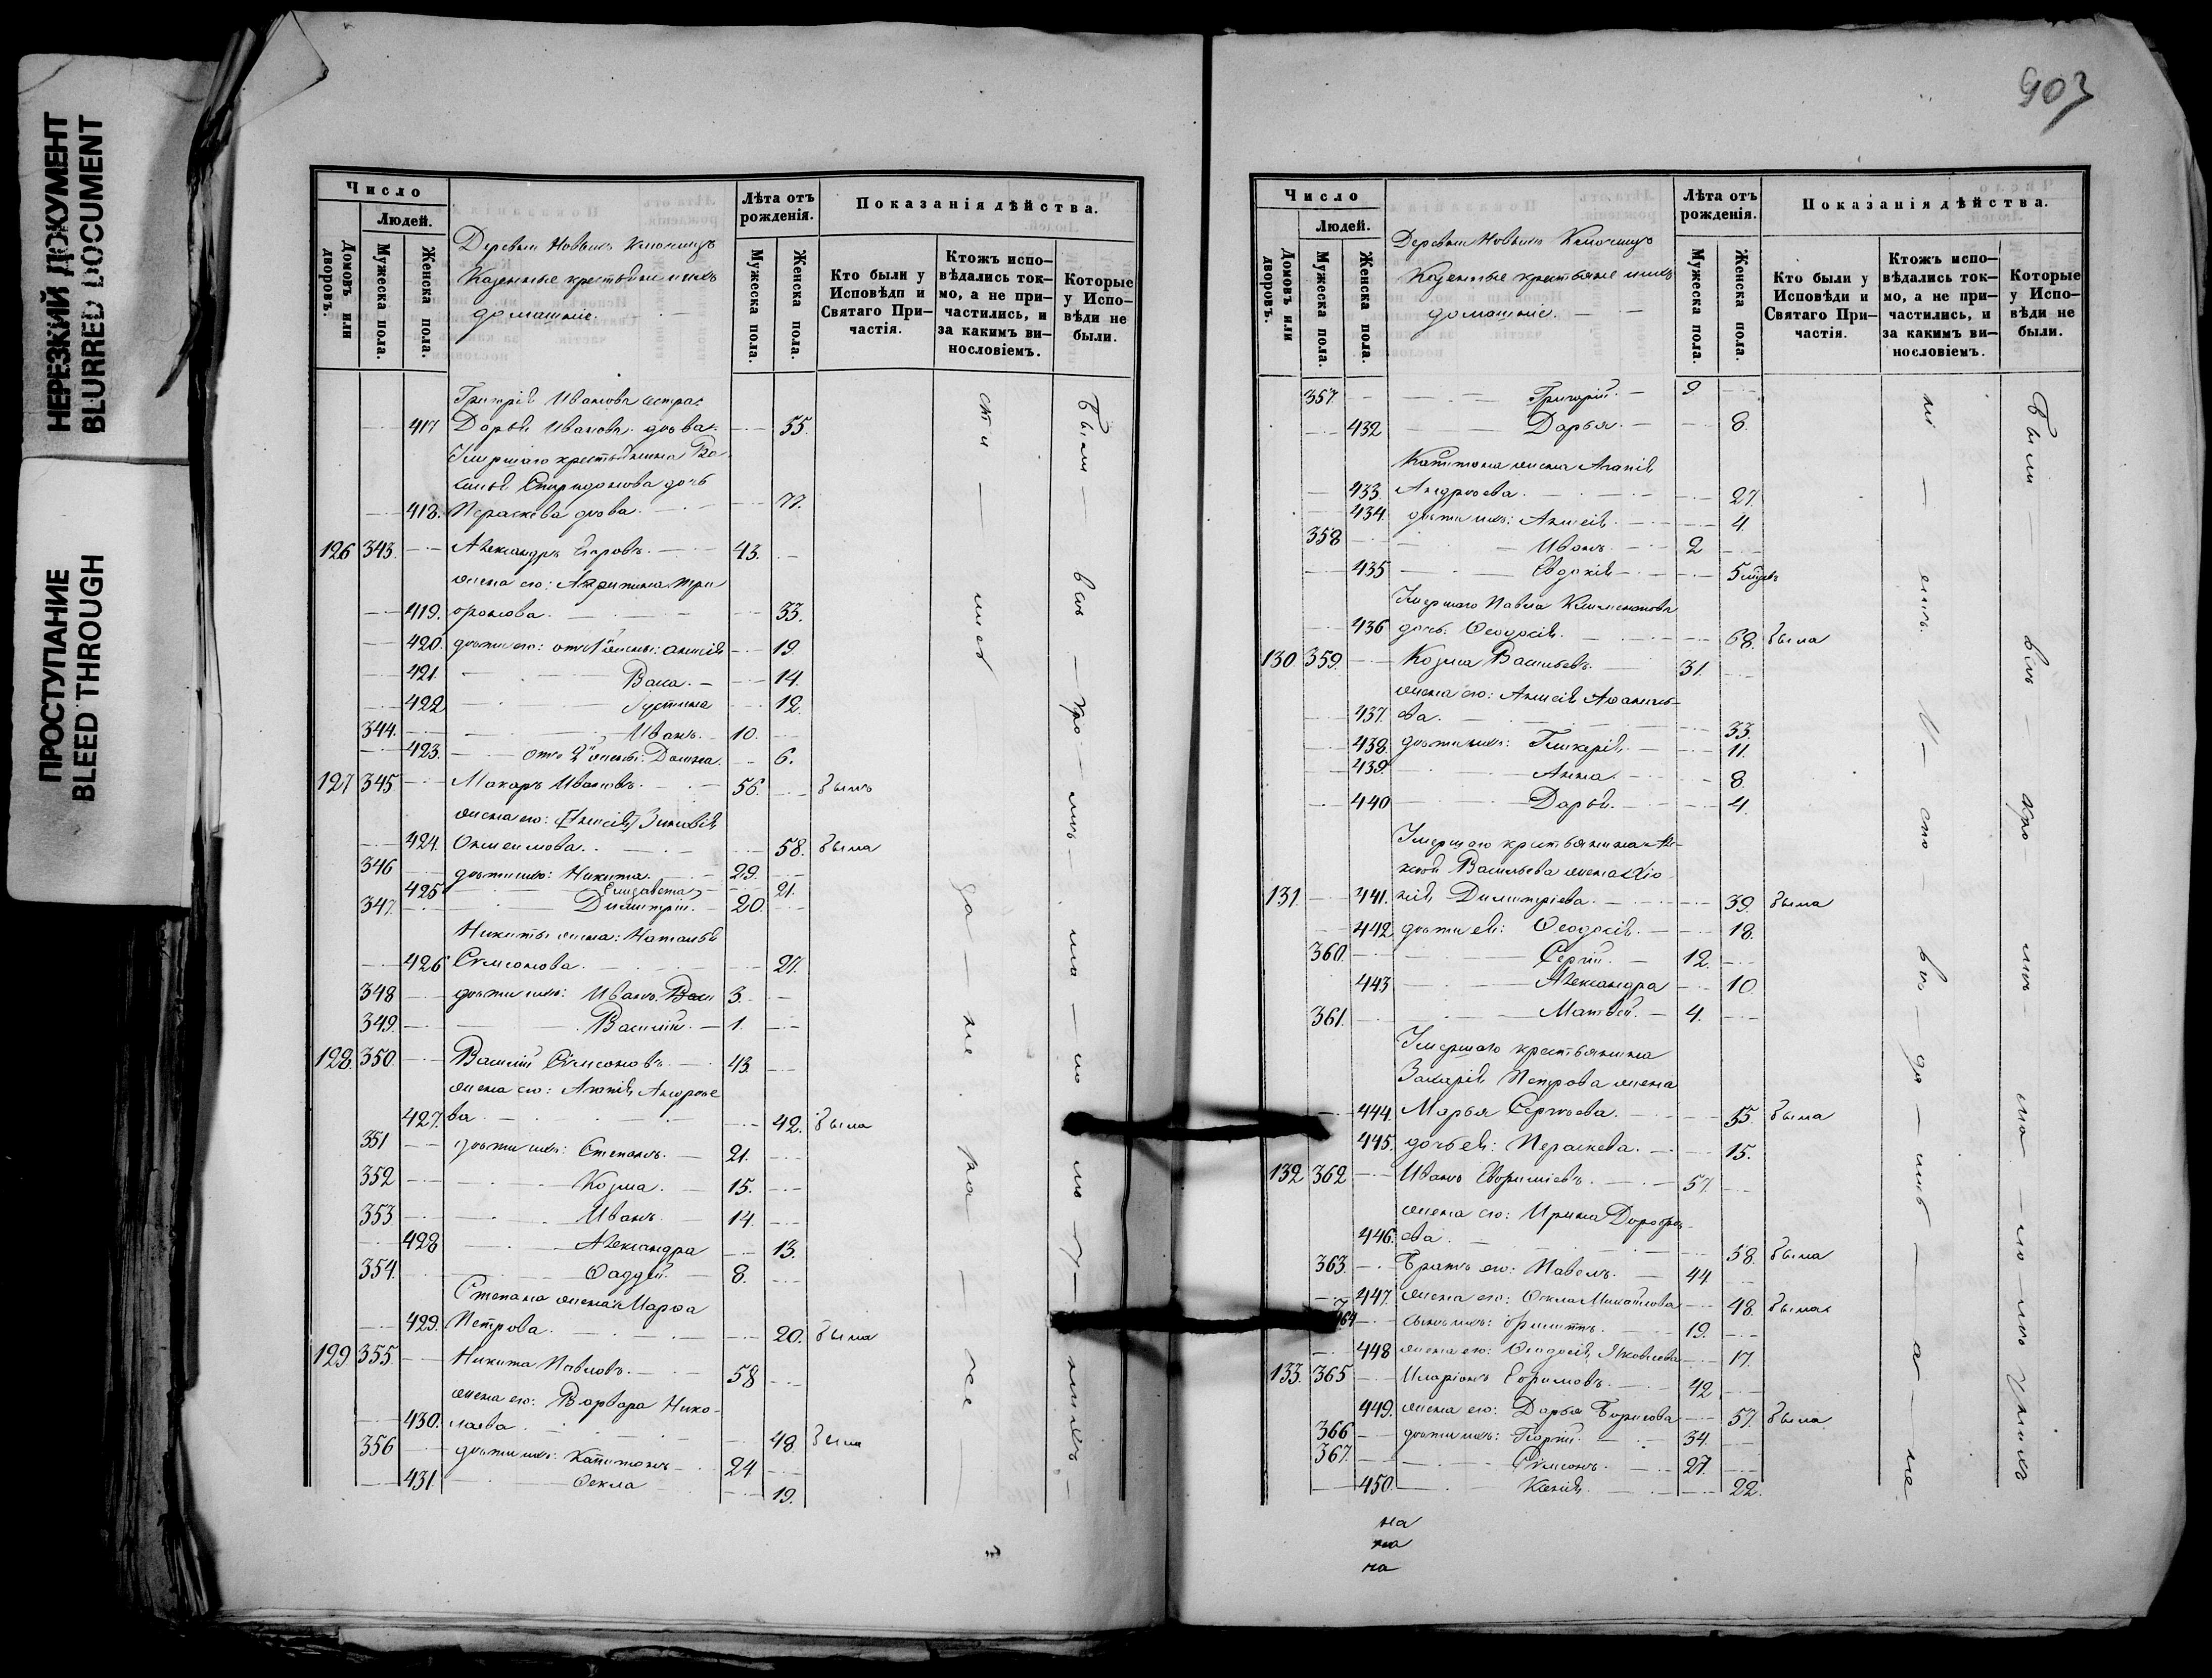 НЕРЕЗКИЙ ДОКУМЕНТ
BLURRED DOCUMENT
ПРОСТУПАНИЕ
BLEED THROUGH
Число
Людей.
Домовъ или дворовъ.
Мужеска пола.
Женска пола.
Деревни Новыхъ Ключищъ
Казенные крестьяне и ихъ
домашніе.
Лѣта отъ рожденія.
Мужеска пола.
Женска пола.
Показанія дѣйства.
Кто были у Исповѣди и Святаго Причастія.
Ктожъ исповѣдались токмо, а не причастились, и за какимъ винословіемъ.
Которые у Исповѣди не были.
Иванова сестра
417 Дарья Иванова дѣва. 55.
Умершаго крестьянина Ва-
силья Спиридонова дочь
418. Параскева дѣва. 77.
126 343. Александръ 43.
жена его: Акилина Три
419. фонова. 33.
420. дѣти его: отъ 1й жены: Анисія 19.
421. Васса. 14.
422 Іустина 12.
344. Иванъ. 10.
423. отъ 2й жены: Домна. 6.
127 345 Макаръ Ивановъ. 56. былъ
жена его: Зиновія
424. Онисимова. 58. была
346 дѣти ихъ: Никита. 29.
425 Елизавета 21.
347. Димитрій. 20.
Никиты жена: Наталья
426 Симеонова. 27.
348 дѣти ихъ: Иванъ. 3.
349. Василій. 1.
128. 350. Василій Симеоновъ. 43.
жена его: Агапія Андрее
427. ва. 42. была
351 дѣти ихъ: Степанъ. 21.
352 Козма. 15.
353 Иванъ. 14.
428 Александра 13.
354. Фаддей. 8.
Степана жена Марфа
429. Петрова. 20. была
129 355. Никита Павловъ. 58
жена его: Варвара Нико-
430. лаева. 48. была
356 дѣти ихъ: Капитонъ. 24
431 Фекла 19.
903
Число
Людей.
Домовъ или дворовъ.
Мужеска пола.
Женска пола.
Деревни Новыхъ Ключищъ
Казенные крестьяне и ихъ
домашніе.
Лѣта отъ рожденія.
Мужеска пола.
Женска пола.
Показанія дѣйства.
Кто были у Исповѣди и Святаго Причастія.
Ктожъ исповѣдались токмо, а не причастились, и за какимъ винословіемъ.
Которые у Исповѣди не были.
357. Григорій. 9
432 Дарья. 8.
Капитона жена Агапія
433. Андреева. 27.
434. дѣти ихъ: Анисія. 4.
358 Иванъ. 2
435 Евдокія 5
Умершаго Павла Климентова
436 дочь: Феодосія. 68. была
130 359. Козма Васильевъ. 31.
жена его: Анисія Афанась-
437. ева. 33.
438. дѣти ихъ: Гликерія. 11.
439. Анна. 8.
440 Дарья. 4.
Умершаго крестьянина Але-
ксѣя Васильева жена Хіо
131. 441. нія Димитріева. 39. была
442 дѣти ея: Феодосія. 18.
360. Сергій. 12.
443 Александра 10.
361. Матвей. 4.
Умершаго крестьянина
Захарія Петрова жена
444. Марья Сергѣева. 55. была
445. дочь ея: Параскева. 15.
132 362 Иванъ 57.
жена его: Ирина Дорофе-
446. ева. 58. была
363. Братъ его: Павелъ. 44
447. жена его: Фекла Михайлова 48. была
364 сынъ ихъ: Филиппъ. 19.
448 жена его: Феодосія Яковлева 17.
133. 365 Иларіонъ Ефимовъ. 42
449. жена его: Дарья Борисова 57. была
366 дѣти ихъ: Георгій. 34.
367. Симеонъ. 27.
450. Ксенія. 22.
на
на
на